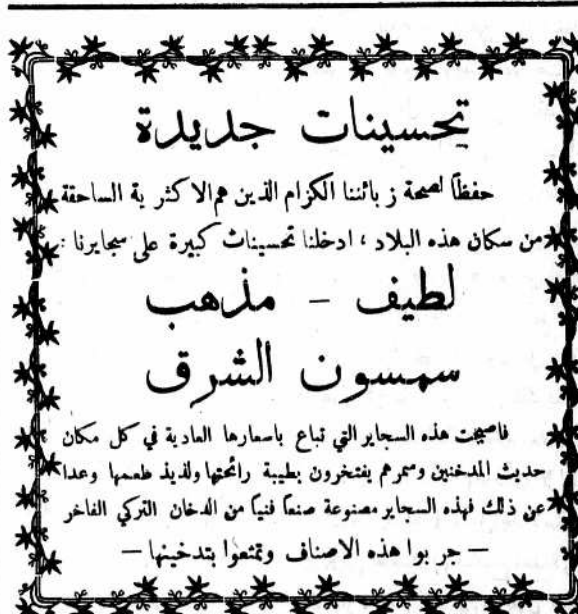 تحسينات جديدة
حفظاً لصحة زبائننا الكرام الذين هم الاكثرية الساحقة
من سكان هذه البلاد ، ادخلنا تحسينات كبيرة على سجايرنا :
لطيف – مذهب
سمسون الشرق
فاصبحت هذه السجاير التي تباع باسعارها العادية في كل مكان
حديث المدخنين وسمرهم يفتخرون بطيبة رائحتها ولذيذ طعمها وعدا
عن ذلك فهذه السجاير مصنوعة صنعاً فنياً من الدخان التركي الفاخر
— جربوا هذه الاصناف وتمتعوا بتدخينها —